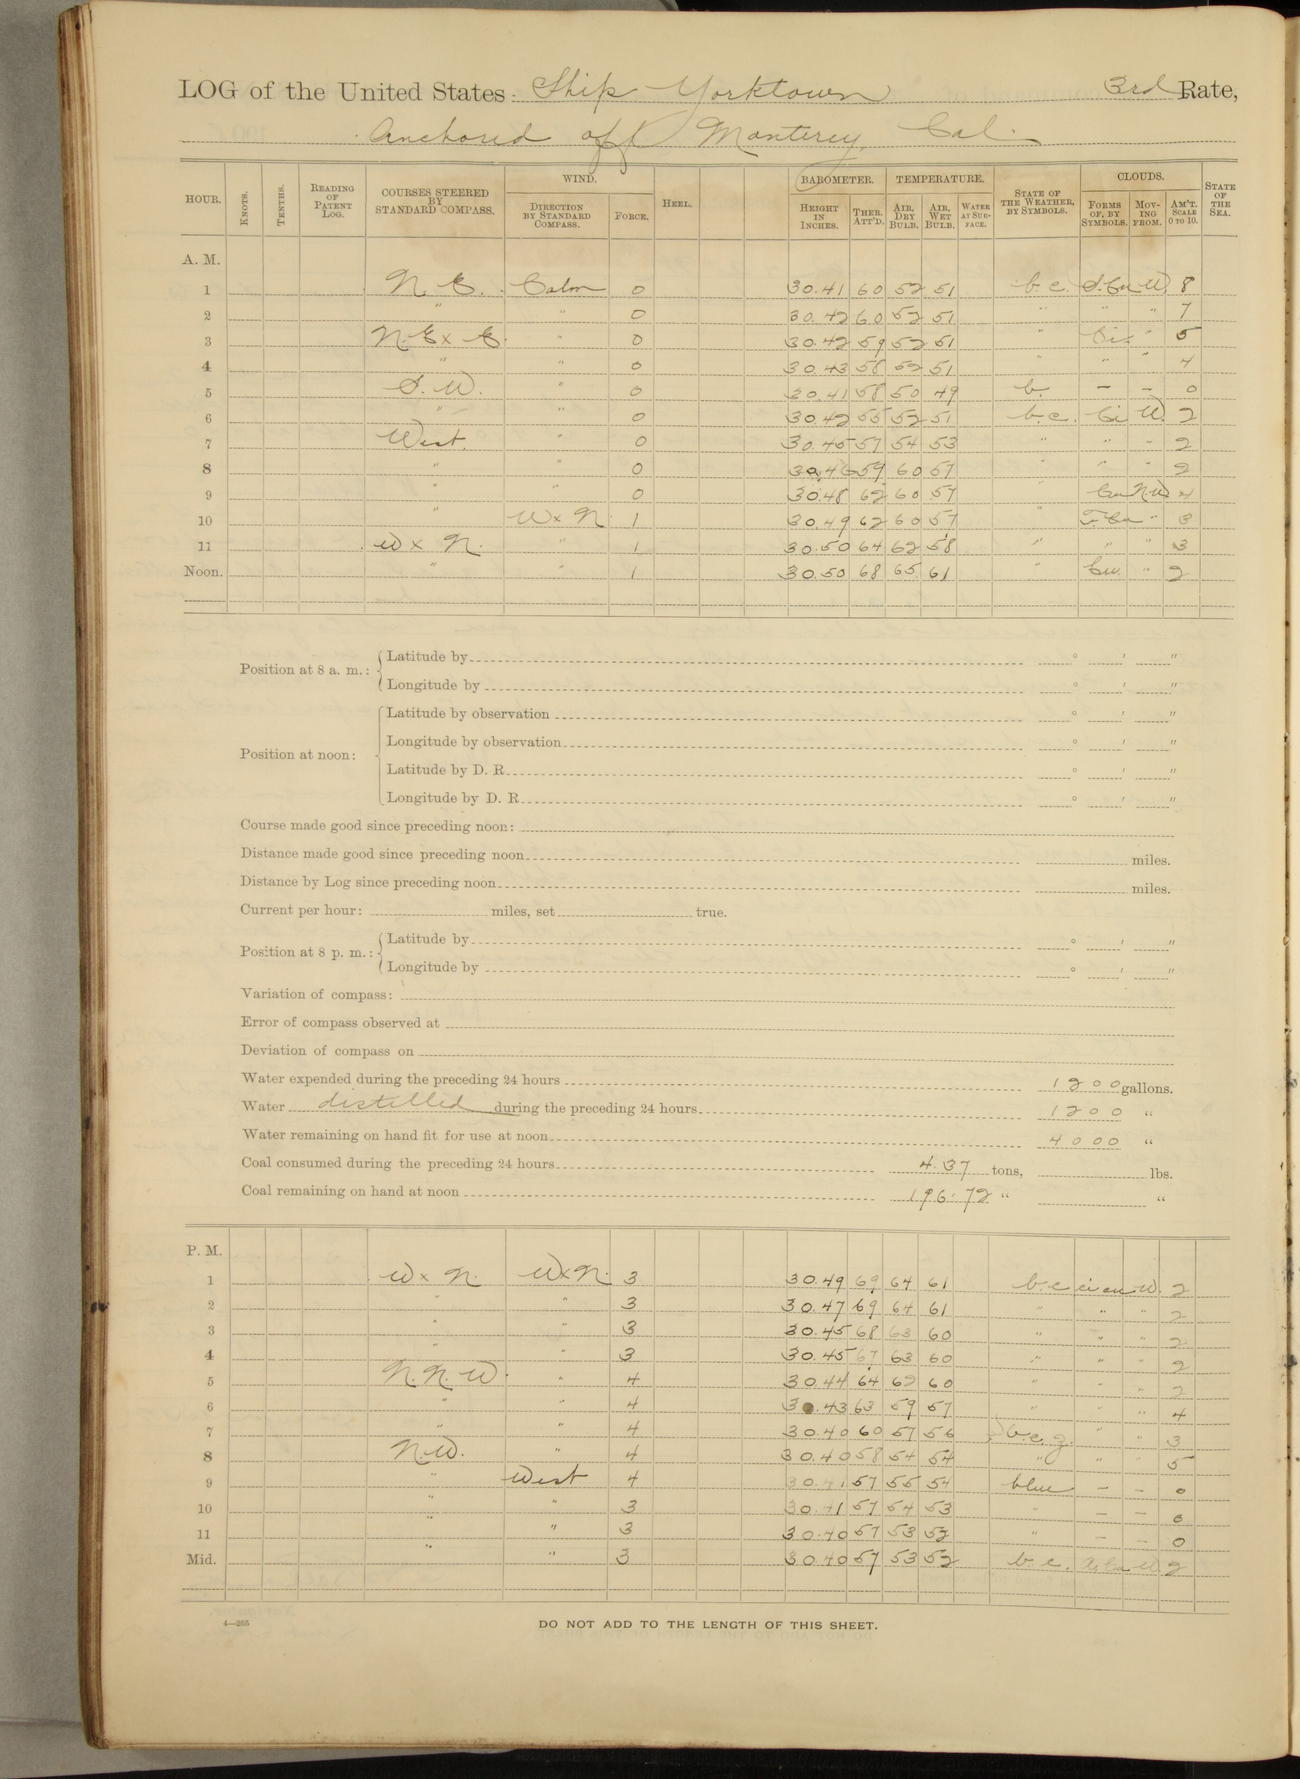 LOG of the United States Ship Yorktown 3rd Rate,
Anchored off Monterey, Cal.
HOUR. KNOTS. TENTHS. READING OF PATENT LOG. COURSES STEERED BY STANDARD COMPASS. WIND. DIRECTION BY STANDARD COMPASS. FORCE. HEEL. BAROMETER. HEIGHT IN INCHES. THER. ATT'D. TEMPERATURE. AIR, DRY BULB. AIR, WET BULB. WATER AT SURFACE. STATE OF THE WEATHER, BY SYMBOLS. CLOUDS. FORMS OF, BY SYMBOLS. MOVING FROM. AM'T. SCALE 0 TO 10. STATE OF THE SEA.
A. M.
1 N. E. Calm 0 30.41 60 52 51 b.c. S.Cu W. 8
2 " " 0 30.42 60 52 51 " " " 7
3 N.E x E. " 0 30.42 59 52 51 " " 5
4 " " 0 30.43 58 52 51 " " " 4
5 S. W. " 0 30.41 58 50 49 b. — — 0
6 " " 0 30.42 55 52 51 b.c. Ci W. 2
7 West. " 0 30.45 57 54 53 " " " 2
8 " " 0 30.46 59 60 57 " " " 2
9 " " 0 30.48 62 60 57 " Cu N.W 4
10 " W x N. 1 30.49 62 60 57 " " 3
11 W x N. " 1 30.50 64 62 58 " " " 3
Noon. " " 1 30.50 68 65 61 " Cu. " 2
Position at 8 a. m.: Latitude by ° ' "
Longitude by ° ' "
Position at noon: Latitude by observation ° ' "
Longitude by observation ° ' "
Latitude by D. R. ° ' "
Longitude by D. R. ° ' "
Course made good since preceding noon:
Distance made good since preceding noon miles.
Distance by Log since preceding noon miles.
Current per hour: miles, set true.
Position at 8 p. m.: Latitude by ° ' "
Longitude by ° ' "
Variation of compass:
Error of compass observed at
Deviation of compass on
Water expended during the preceding 24 hours 1200 gallons.
Water distilled during the preceding 24 hours 1200 "
Water remaining on hand fit for use at noon 4000 "
Coal consumed during the preceding 24 hours 4.37 tons, lbs.
Coal remaining on hand at noon 196.72 " "
P. M.
1 W x N. W x N. 3 30.49 69 64 61 b.c ci cu W. 2
2 " " 3 30.47 69 64 61 " " " 2
3 " " 3 30.45 68 63 60 " " " 2
4 " " 3 30.45 67 63 60 " " " 2
5 N. N. W. " 4 30.44 64 62 60 " " " 2
6 " " 4 30.43 63 59 57 " " " 4
7 " " 4 30.40 60 57 56 b.c.g. " " 3
8 N.W. " 4 30.40 58 54 54 " " " 5
9 " West 4 30.41 57 55 54 blue — — 0
10 " " 3 30.41 57 54 53 " — — 0
11 " " 3 30.40 57 53 52 " — — 0
Mid. " " 3 30.40 57 53 52 b.c. W 2
4—265
DO NOT ADD TO THE LENGTH OF THIS SHEET.